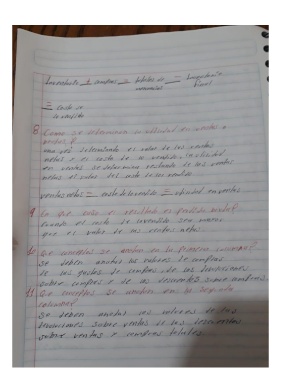 Inventario + compras = total de - Inventario
mercancías final
= costo de
lo vendido
8 Como se determina la utilidad en ventas o
una vez determinado el valor de las ventas
netas y el costo de lo vendido la utilidad
en ventas se determina restando de las ventas
netas el valor del costo de lo vendido
ventas netas - costo de lo vendido = utilidad en ventas
9 En que caso el resultado es perdida
cuando el costo de lo vendido sea mayor
que el valor de las ventas netas
10 Que conceptos se anotan en la primera columna?
Se deben anotar los valores de compras
de los gastos de compras de las devoluciones
sobre compras y de los descuentos sobre compras
11 Que conceptos se anotan en la segunda
columna?
se deben anotar los valores de las
devoluciones sobre ventas de los descuentos
sobre ventas y compras totales